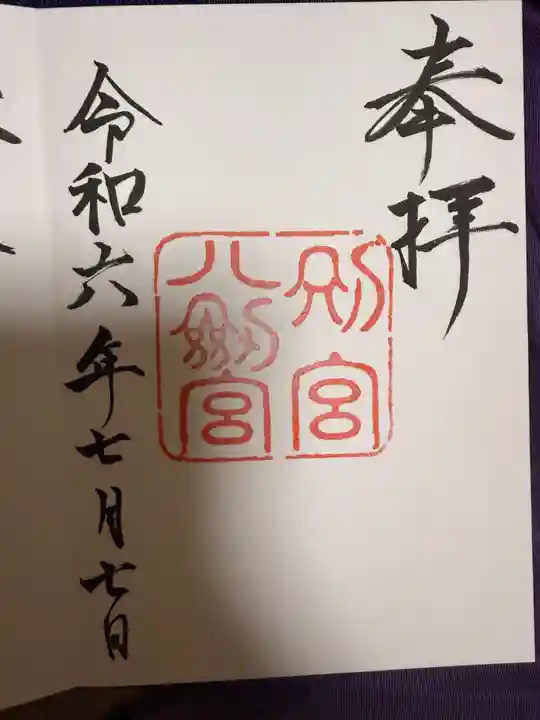 奉拝
別宮
八剱宮
令和六年七月七日